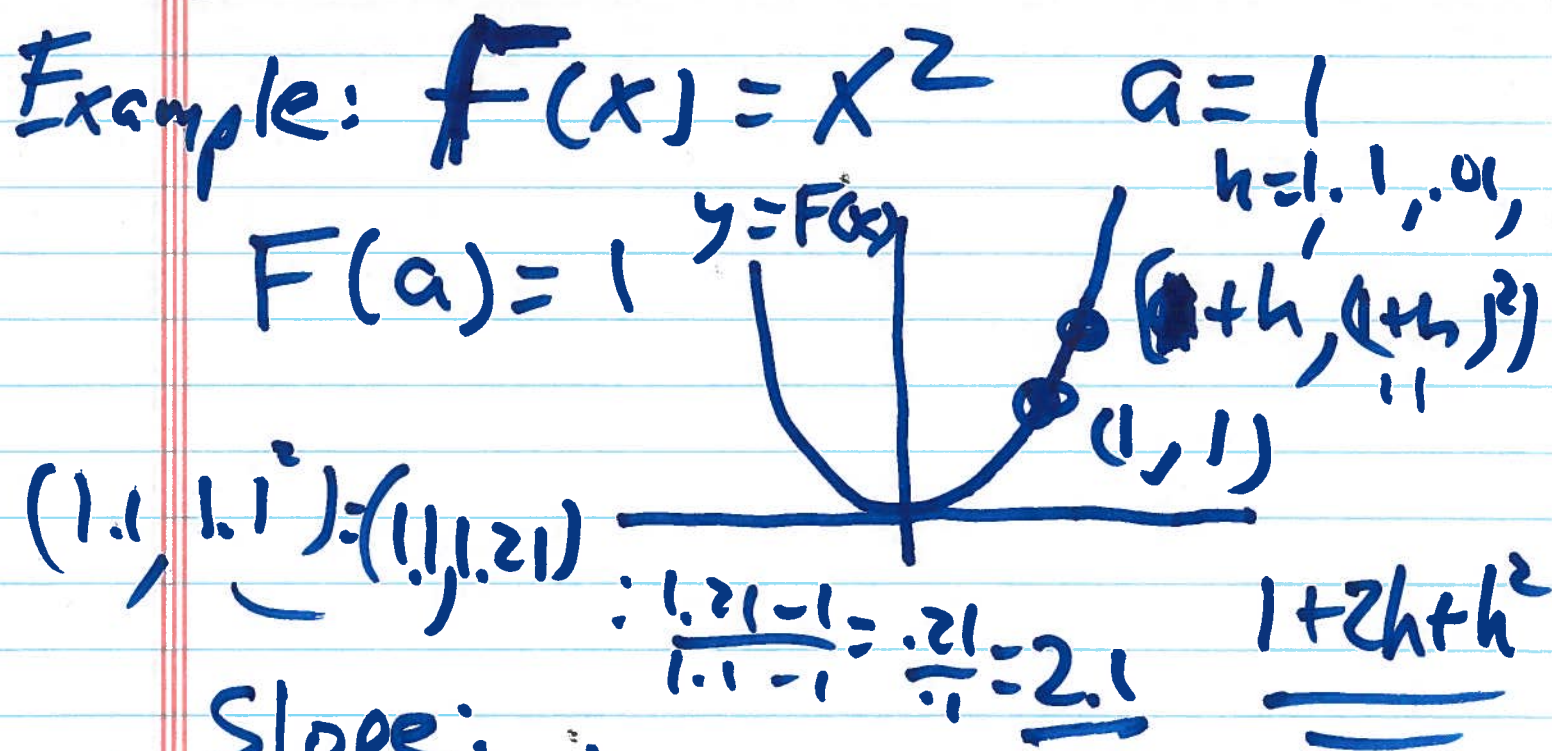 Example: F(x) = x² a = 1
h = 1, .1, .01,
F(a) = 1 y = F(x)
( +h, (1+h)²)
"
(1, 1)
(1.1, 1.1²) = (1.1, 1.21)
: 1.21-1 / 1.1-1 = .21 / .1 = 2.1 1+2h+h²
Slope: